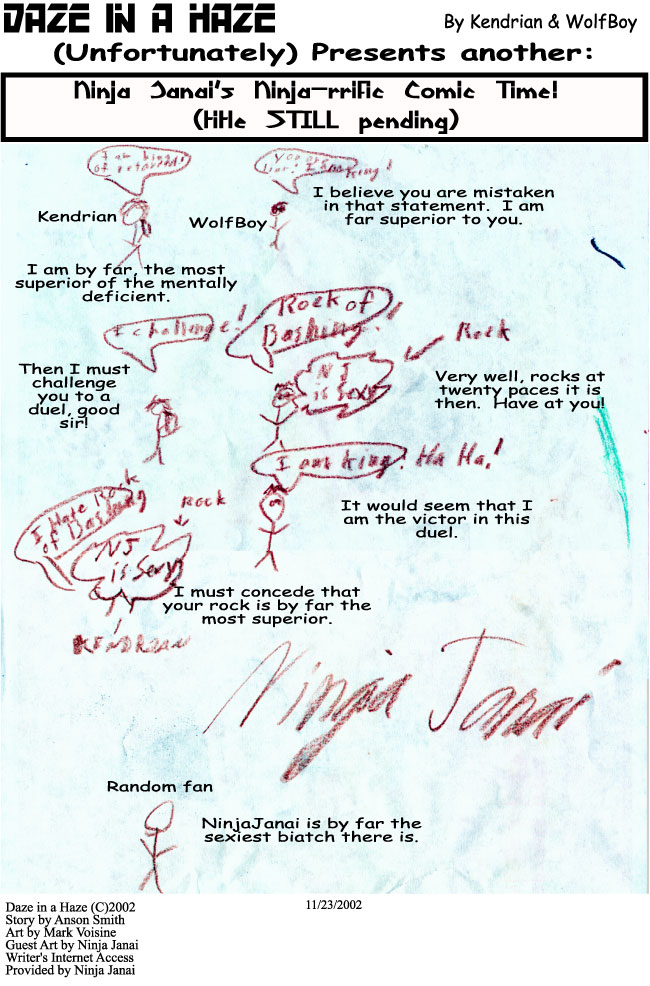 DAZE IN A HAZE
By Kendrian & WolfBoy
(Unfortunately) Presents another:
Ninja Janai's Ninja-rrific Comic Time!
(HHe STILL pending)
I am king
of retarded!
You are
liar! I am king!
Kendrian
WolfBoy
I believe you are mistaken
in that statement. I am
far superior to you.
I am by far, the most
superior of the mentally
deficient.
I challenge!
Rock of
Bashing!
Rock
NJ
is sexy
Then I must
challenge
you to a
duel, good
sir!
Very well, rocks at
twenty paces it is
then. Have at you!
I am king! Ha Ha!
It would seem that I
am the victor in this
duel.
I Hate Rock
of Bashing
ROCK
NJ
is sexy
I must concede that
your rock is by far the
most superior.
KENDRIAN
Ninja Janai
Random fan
NinjaJanai is by far the
sexiest biatch there is.
Daze in a Haze (C)2002
Story by Anson Smith
Art by Mark Voisine
Guest Art by Ninja Janai
Writer's Internet Access
Provided by Ninja Janai
11/23/2002